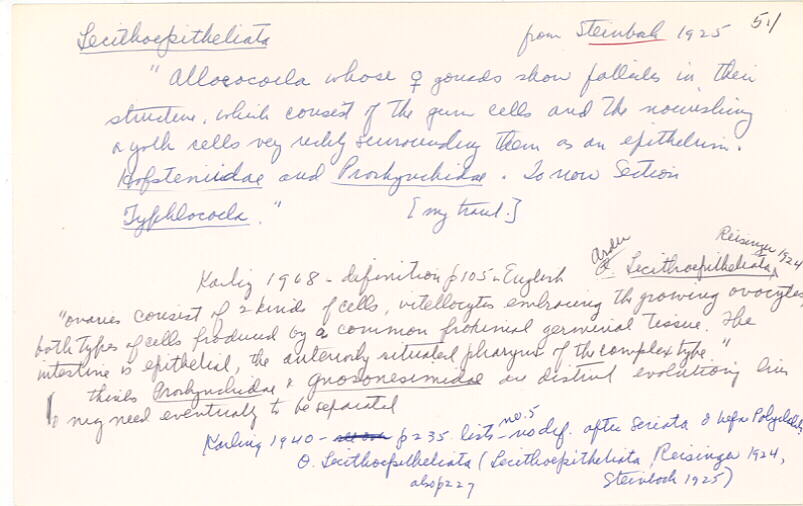 Lecithoepitheliata from Steinbock 1925 51
"Alloeocoela whose ♀ gonads show follicles in their
structure, which consist of the germ cells and the nourishing
yolk cells surrounding them as an epithelium.
Hofsteniidae and Prorhynchidae. To now Section
Typhlocoela." [my transl.]
Karling 1968 - definition p105 - English Order O. Lecithoepitheliata, Reisinger 1924
"ovaries consist of 2 kinds of cells, vitellocytes embracing the growing ovocytes,
both types of cells produced by a common proximal germinal tissue. The
intestine is epithelial, the anteriorly situated pharynx of the complex type"
thinks Prorhynchidae & Gnosonesimidae are distinct evolutionary lines
& may need eventually to be separated
Karling 1940 - p235 lists no. 5 - no def. after Seriata & before Polycladida
O. Lecithoepitheliata (Lecithoepitheliata, Reisinger 1924,
also p227 Steinbock 1925)